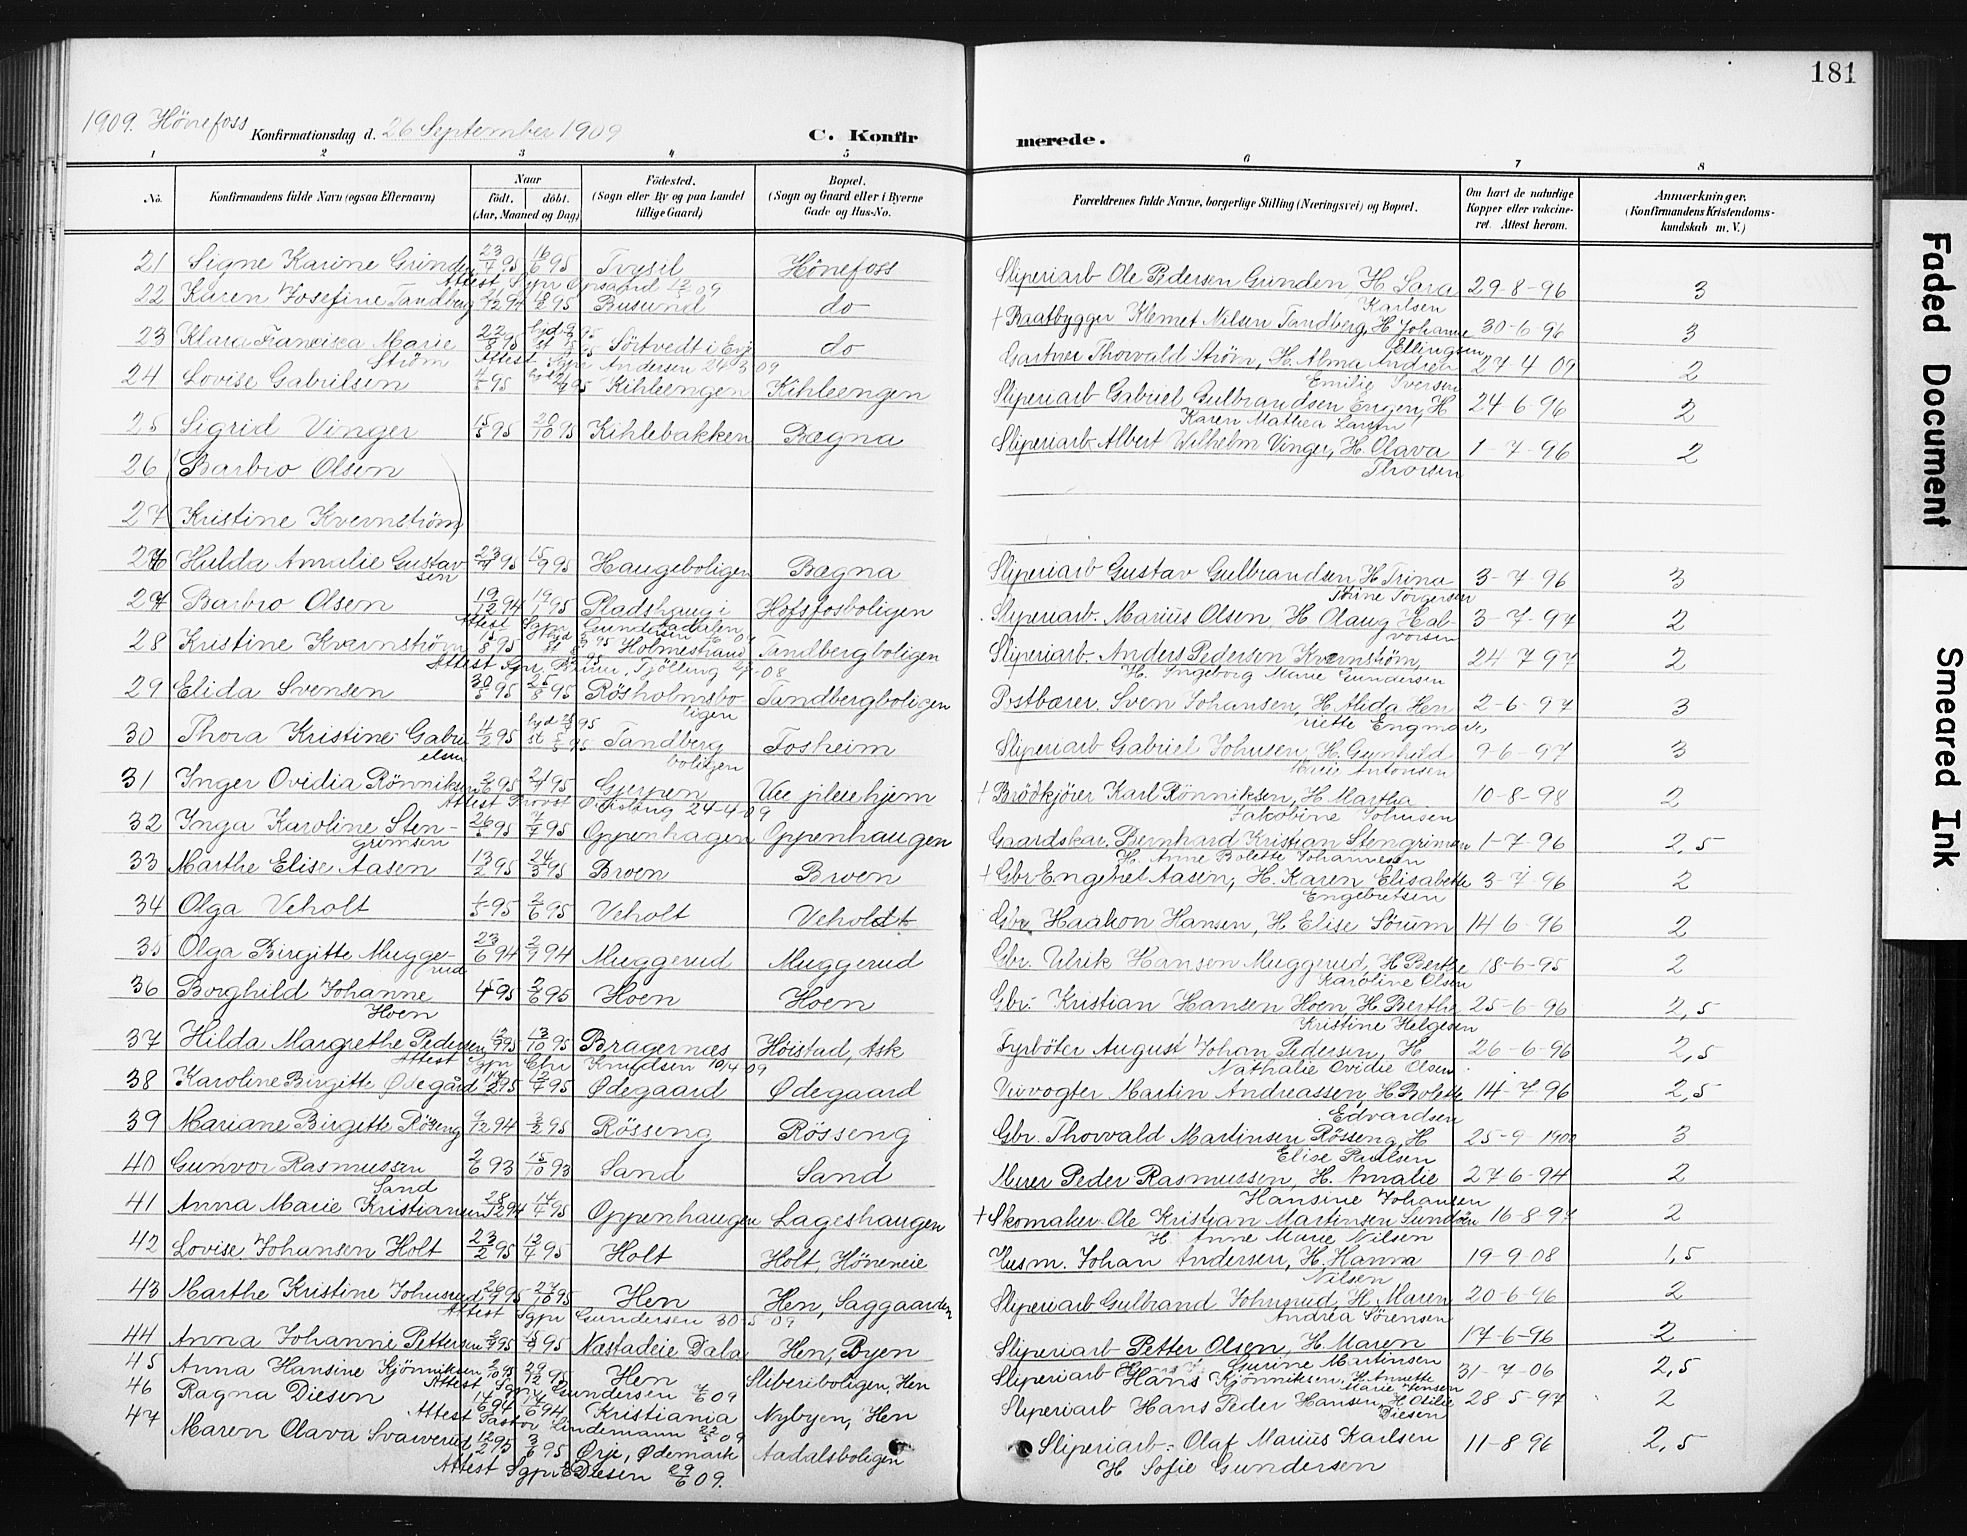 181
1909. Hönefoss
Konfirmationsdag d. 26 September 1909
C. Konfir merede.
1 2 3 4 5 6 7 8
No. Konfirmandens fulde Navn (ogsaa Efternavn) Naar født. døbt. (Aar, Maaned og Dag) Fødested. (Sogn eller By og paa Landet tillige Gaard) Bopæl. (Sogn og Gaard eller i Byerne Gade og Hus-No. Forældrenes fulde Navne, borgerlige Stilling (Næringsvei) og Bopæl. Om havt de naturlige Kopper eller vakcineret. Attest herom. Anmærkninger. (Konfirmandens Kristendomskundskab m. V.)
21 Signe Karine Grinden 23/4 95 16/6 95 Trysil Hönefoss Sliperiarb Ole Pedersen Grinden, H. Sara Karlsen 29-8-96 3
Attest Sgpr Opsaard 09
22 Karen Josefine Tandberg 12 94 95 Busund do + Baatbygger Klemet Nilsen Tandberg, H Johanne Ellingsen 30-6-96 3
23 Klara Francisca Marie Ström 22/8 95 Sörtvedt i do Gartner Thorvald Ström, H. Alma Andrea Emilie Iversen 27 4 09 2
Attest Sgpr Andersen 24 3 09
24 Lovise Gabrilsen 4/5 95 Kihleengen Kihleengen Sliperiarb Gabriel Gulbrandsen Engen, H Karen Mathea Larsen 24-6-96 2
25 Sigrid Vinger 15/8 95 20/10 95 Kihlebakken Bægna Sliperiarb Albert Wilhelm Vinger, H. Olava Thorsen 1-7-96 2
26 (Barbro Olsen
27 Kristine Kvernström)
26 Hulda Amalie Gustavsen 23/7 95 15/9 95 Haugeboligen Bægna Sliperiarb Gustav Gulbrandsen H. Trina Torgersen 3-7-96 3
27 Barbro Olsen 19/12 94 19/1 95 Pladshaug i Gunders Hofsfosboligen Sliperiarb. Marius Olsen, H. Olaug Halvorsen 3-7-97 2
28 Kristine Kvernström 15/8 95 Holmestrand Tandbergboligen Sliperiarb. Anders Pedersen Kvernström, H. Ingeborg Marie Gundersen 24 7 97 2
Attest Sgpr Tjölling 08
29 Elida Svensen 30/5 95 25/8 95 Rösholmsboligen Tandbergboligen Postbærer Sven Johansen, H. Alida Henriette Engmark 2-6-97 3
30 Thora Kristine Gabrielsen 4/2 95 Tandbergboligen Fosheim Sliperiarb Gabriel Johnsen, H. Gunhild Antonsen 9-6-97 3
31 Inger Ovidia Rönniksen 2/6 95 21/7 95 Gjerpen Vee pleiehjem + Brödkjörer Karl Rönniksen, H. Martha Jakobine Johnsen 10-8-98 2
Attest Provst 24-4-09
32 Inga Karoline Stengrimsen 26/5 95 7/7 95 Oppenhagen Oppenhaugen Gaardskar. Bernhard Kristian Stengrimsen H. Anne Bolette Johannesen 1-7-96 2,5
33 Marthe Elise Aasen 13/2 95 24/3 95 Broen Broen + Gbr Engebret Aasen, H. Karen Elisabeth Engebretsen 3-7-96 2
34 Olga Veholt 1/5 95 2/6 95 Veholt Veholdt Gbr Haakon Hansen, H Elise Sörum 14 6-96 2
35 Olga Birgitte Muggerud 23/6 94 2/9 94 Muggerud Muggerud Gbr. Ulrik Hansen Muggerud, H Berthe Karoline Olsen 18-6-95 2
36 Borghild Johanne Hoen 95 2/6 95 Hoen Hoen Gbr. Kristian Hansen Hoen, H Berthe Kristine Helgesen 25-6-96 2,5
37 Hilda Margrethe Pedersen 95 13/10 95 Bragernæs Höistad, Ask Fyrböter August Johan Pedersen, H Nathalie Ovidie Olsen 26-6-96 2,5
Attest Sgpr Chr Knudsen 10/4 09
38 Karoline Birgitte Ødegård 95 12/4 95 Ødegaard Ødegaard Veivogter Martin Andreassen, H Bolette Edvardsen 14-7-96 2,5
39 Mariane Birgitte Röseng 9/12 94 3/2 95 Rösseng Rösseng Gbr. Thorvald Martinsen Rösseng, H Elise Paulsen 25-9-1900 3
40 Gunvor Rasmussen Sand 2/6 93 15/10 93 Sand Sand Murer Peder Rasmussen, H. Amalie Hansine Johansen 27-6-94 2
41 Anna Marie Kristiansen 28/12 94 14/4 95 Oppenhaugen Lageshaugen + Skomaker. Ole Kristian Martinsen Sundöen H. Anne Marie Nilsen 16-8-97 2
42 Lovise Johansen Holt 23/2 95 12/4 95 Holt Holt, Höneneie Husm. Johan Andersen, H. Hanna Nilsen 19-9 08 1,5
43 Marthe Kristine Johnsrud 26/9 95 27/10 95 Hen Hen, Saggaarden Sliperiarb Gulbrand Johnsrud, H. Maren Andrea Sörensen 20-6-96 2
Attest Sgpr Gundersen 30-5 09
44 Anna Johanne Pettersen 95 95 Næstadeie Dala Hen, Byen Sliperiarb Petter Olsen, H. Maren Gurine Martinsen 17-6-96 2
45 Anna Hansine Kjönniksen 2/10 95 29/12 95 Hen Sliberiboligen, Hen Sliperiarb Hans Kjönniksen, H. Annette Marie Jensen 31-7-06 2,5
Attest Sgpr Gundersen 09
46 Ragna Diesen 14/6 94 94 Kristiania Nybyen, Hen Sliperiarb Hans Peder Hansen, H. Otilie Diesen 28 5-97 2
Attest Pastor Lindemann 09
47 Maren Olava Svarverud 12/2 95 3/6 95 Ørje, Ødemark Aadalsboligen Sliperiarb. Olaf Marius Karlsen H Sofie Gundersen 11-8 96 2,5
Attest Sgpr E Diesen 29/6 09.
Faded Document
Smeared Ink